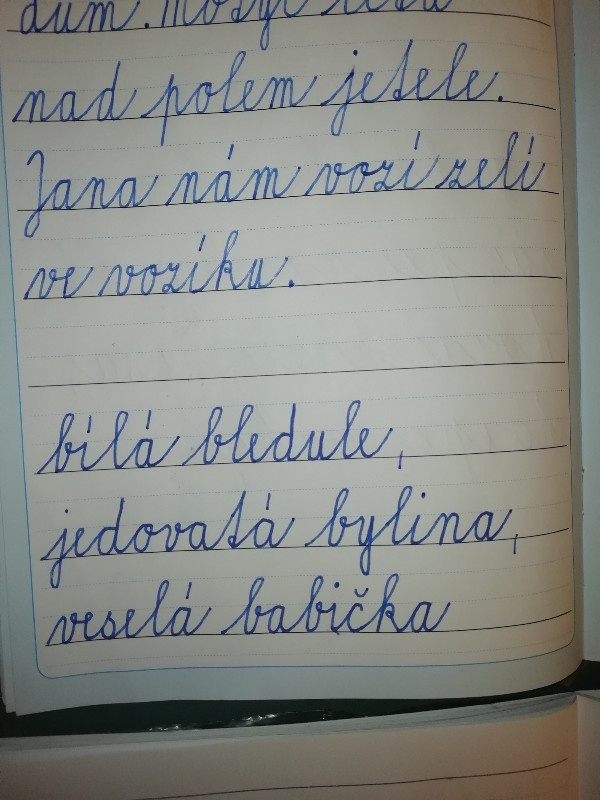 dům. Motýl letá
nad polem jetele.
Jana nám vozí zelí
ve vozíku.
bílá bledule,
jedovatá bylina,
veselá babička